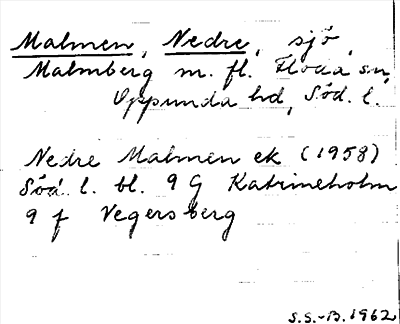 Malmen, Nedre, sjö,
Malmberg m. fl. Floda sn,
Oppunda hd, Söd. l.
Nedre Malmen ek (1958)
Söd. l. bl. 9 G Katrineholm
9 f Vegersberg
S.S.-B. 1962